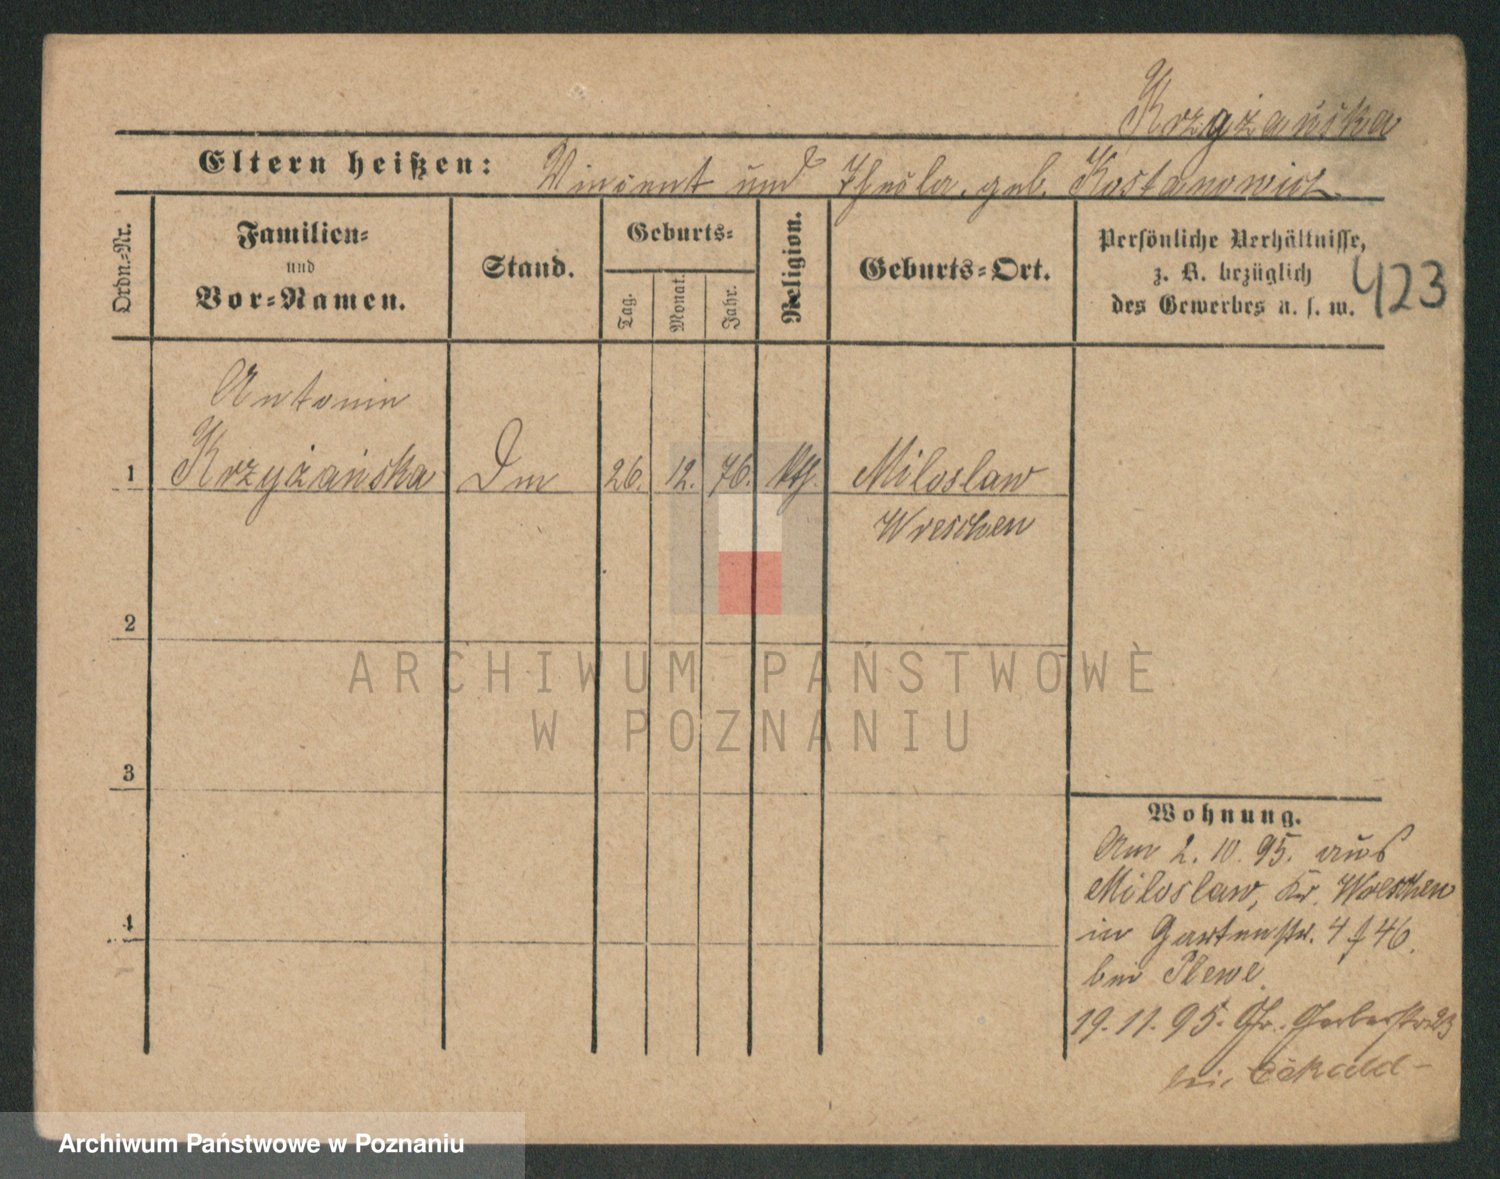 Krzyżańska
Eltern heißen: Vincent und Thecla, geb. Kostanowicz.
Ordn.-Nr.
Familien-
und
Vor-Namen.
Stand.
Geburts-
Tag.
Monat.
Jahr.
Religion.
Geburts-Ort.
Persönliche Verhältnisse,
z. B. bezüglich
des Gewerbes u. s. w.
423
Antonin
1 Krzyżańska Dm 26. 12. 76. kth. Miloslaw
Wreschen
2
3
4
Wohnung.
Am 2. 10. 95. aus
Miloslaw, Kr. Wreschen
in Gartenstr. 4 46.
bei Plewe.
19. 11. 95. Gr. Gerberstr 23
bei
ARCHIWUM PAŃSTWOWE
W POZNANIU
Archiwum Państwowe w Poznaniu